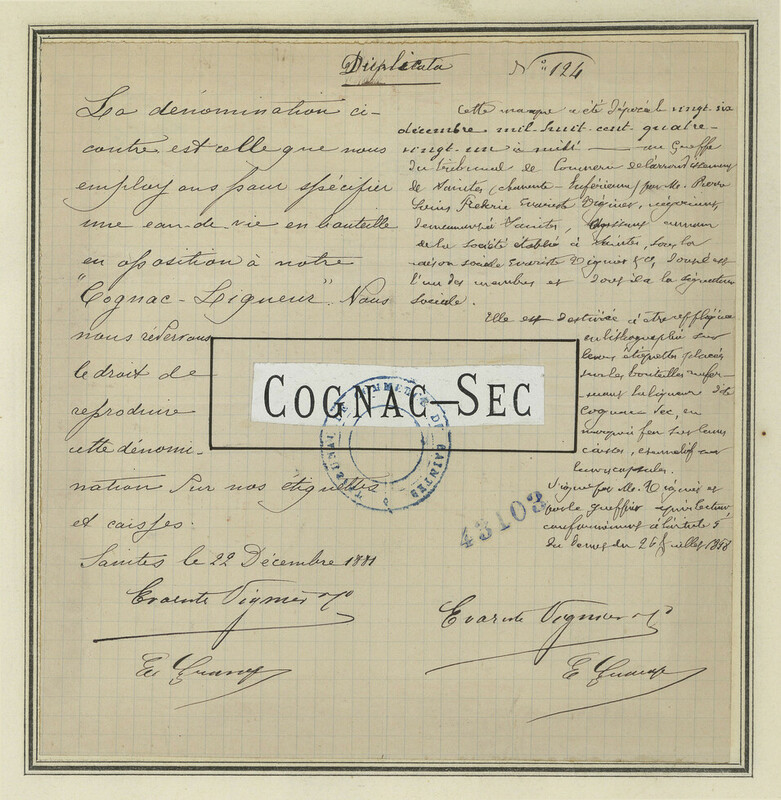 Duplicata
N° 124
La dénomination ci-
contre est celle que nous
employons pour spécifier
une eau-de-vie en bouteille
en opposition à notre
"Cognac-Liqueur". Nous
nous réservons
le droit de
reproduire
cette dénomi-
nation sur nos étiquettes
et caisses.
Saintes le 22 Décembre 1881
Evariste Vignier & Cie
Cette marque a été déposée le vingt-six
décembre mil-huit-cent-quatre-
vingt-un à midi — au Greffe
du tribunal de Commerce de l'arrondissement
de Saintes (Charente-Inférieure) par Mr. Pierre
Louis Evariste Vignier, négociant,
demeurant à Saintes,
de la société établie à Saintes, sous la
raison sociale Evariste Vignier & Ce, dont il est
l'un des membres et dont il a la signature
sociale.
Elle est destinée à être
en lithographie sur
leurs étiquettes placées
sur les bouteilles renfer-
mant la liqueur dite
Cognac Sec, en
marque à feu sur leurs
caisses, et sur
leurs capsules.
Signé par Mr. Vignier et
par le greffier après lecture,
conformément à l'article 5
du décret du 26 Juillet 1858
COGNAC-SEC
TRIBUNAL DE COMMERCE DE SAINTES
43103
Evariste Vignier & Cie